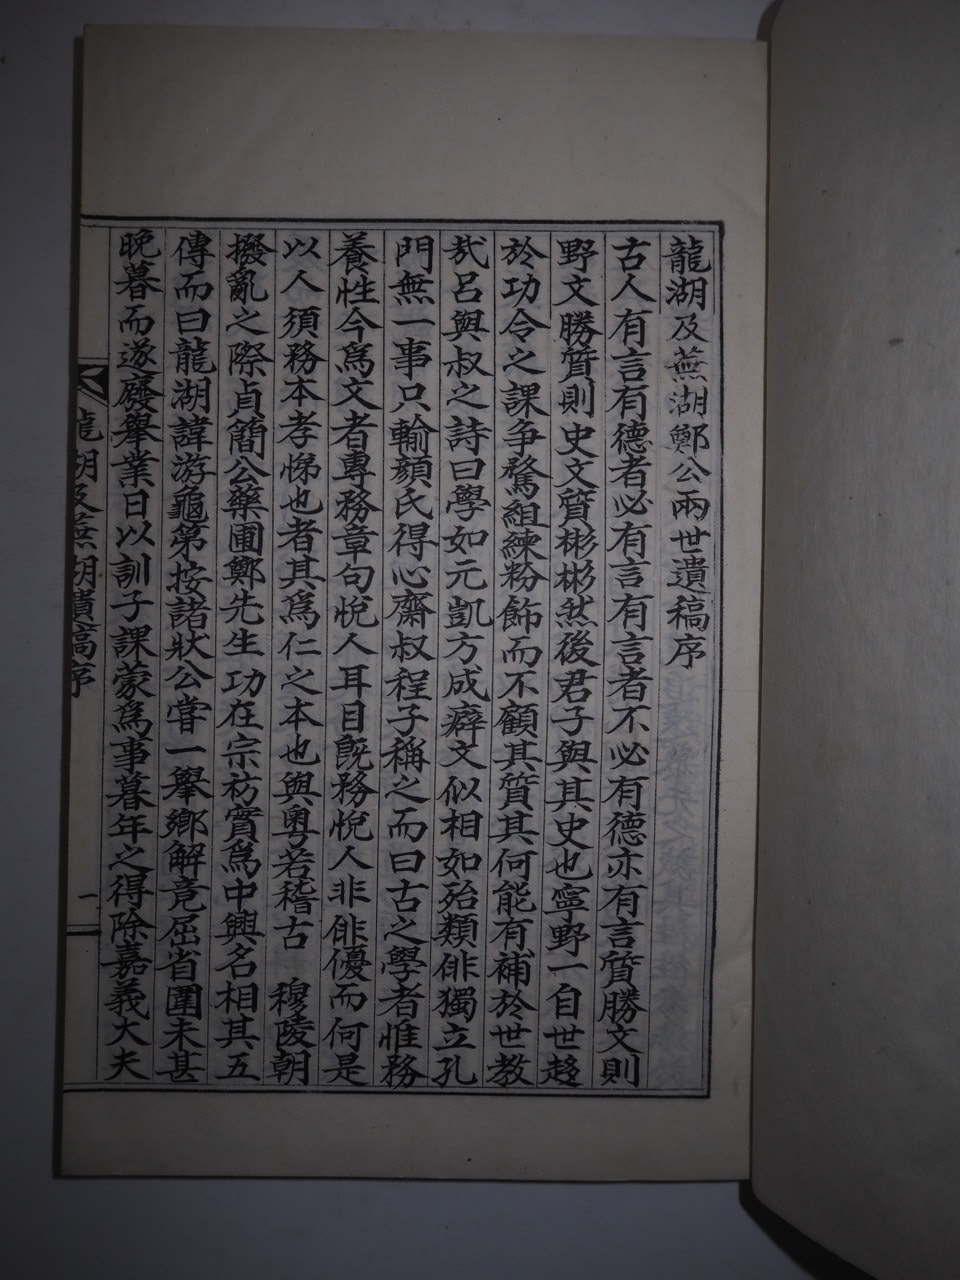 龍湖及蕪湖鄭公兩世遺稿序
古人有言有德者必有言有言者不必有德亦有言質勝文則
野文勝質則史文質彬彬然後君子與其史也寧野一自世趍
於功令之課爭騖組練粉飾而不顧其質其何能有補於世教
㢤呂與叔之詩曰學如元凱方成癖文似相如殆類俳獨立孔
門無一事只輸顔氏得心齋叔程子稱之而曰古之學者惟務
養性今爲文者專務章句悅人耳目旣務悅人非俳優而何是
以人須務本孝悌也者其爲仁之本也與粤若稽古　穆陵朝
撥亂之際貞簡公藥圃鄭先生功在宗祊實爲中興名相其五
傳而曰龍湖諱游龜第按諸狀公嘗一擧鄕解竟屈省圍未甚
晩暮而遂廢擧業日以訓子課蒙爲事暮年之得除嘉義大夫
龍湖及蕪湖遺稿序
一